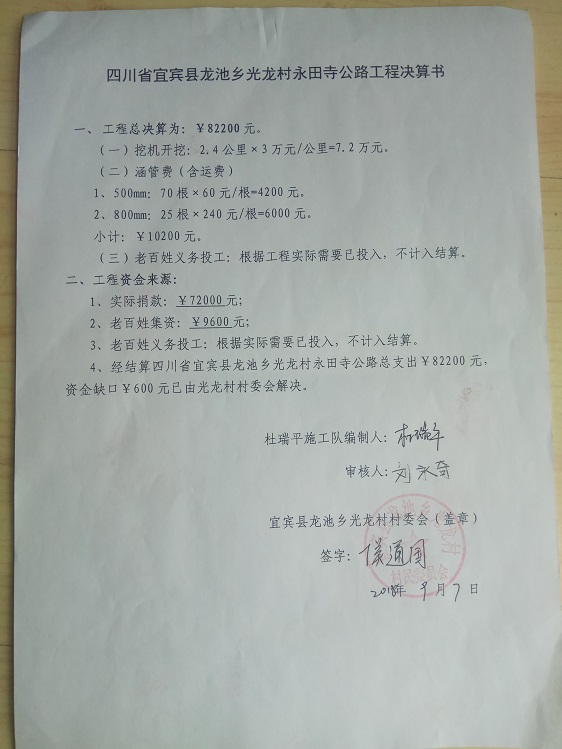 四川省宜宾县龙池乡光龙村永田寺公路工程决算书
一、工程总决算为：￥82200元。
（一）挖机开挖：2.4公里×3万元/公里=7.2万元。
（二）涵管费（含运费）
1、500mm：70根×60元/根=4200元。
2、800mm：25根×240元/根=6000元。
小计：￥10200元。
（三）老百姓义务投工：根据工程实际需要已投入，不计入结算。
二、工程资金来源：
1、实际捐款：￥72000元；
2、老百姓集资：￥9600元；
3、老百姓义务投工：根据实际需要已投入，不计入结算。
4、经结算四川省宜宾县龙池乡光龙村永田寺公路总支出￥82200元，
资金缺口￥600元已由光龙村村委会解决。
杜瑞平施工队编制人：杜瑞平
审核人：刘永奇
宜宾县龙池乡光龙村村委会（盖章）
签字：侯通国
2018年9月7日